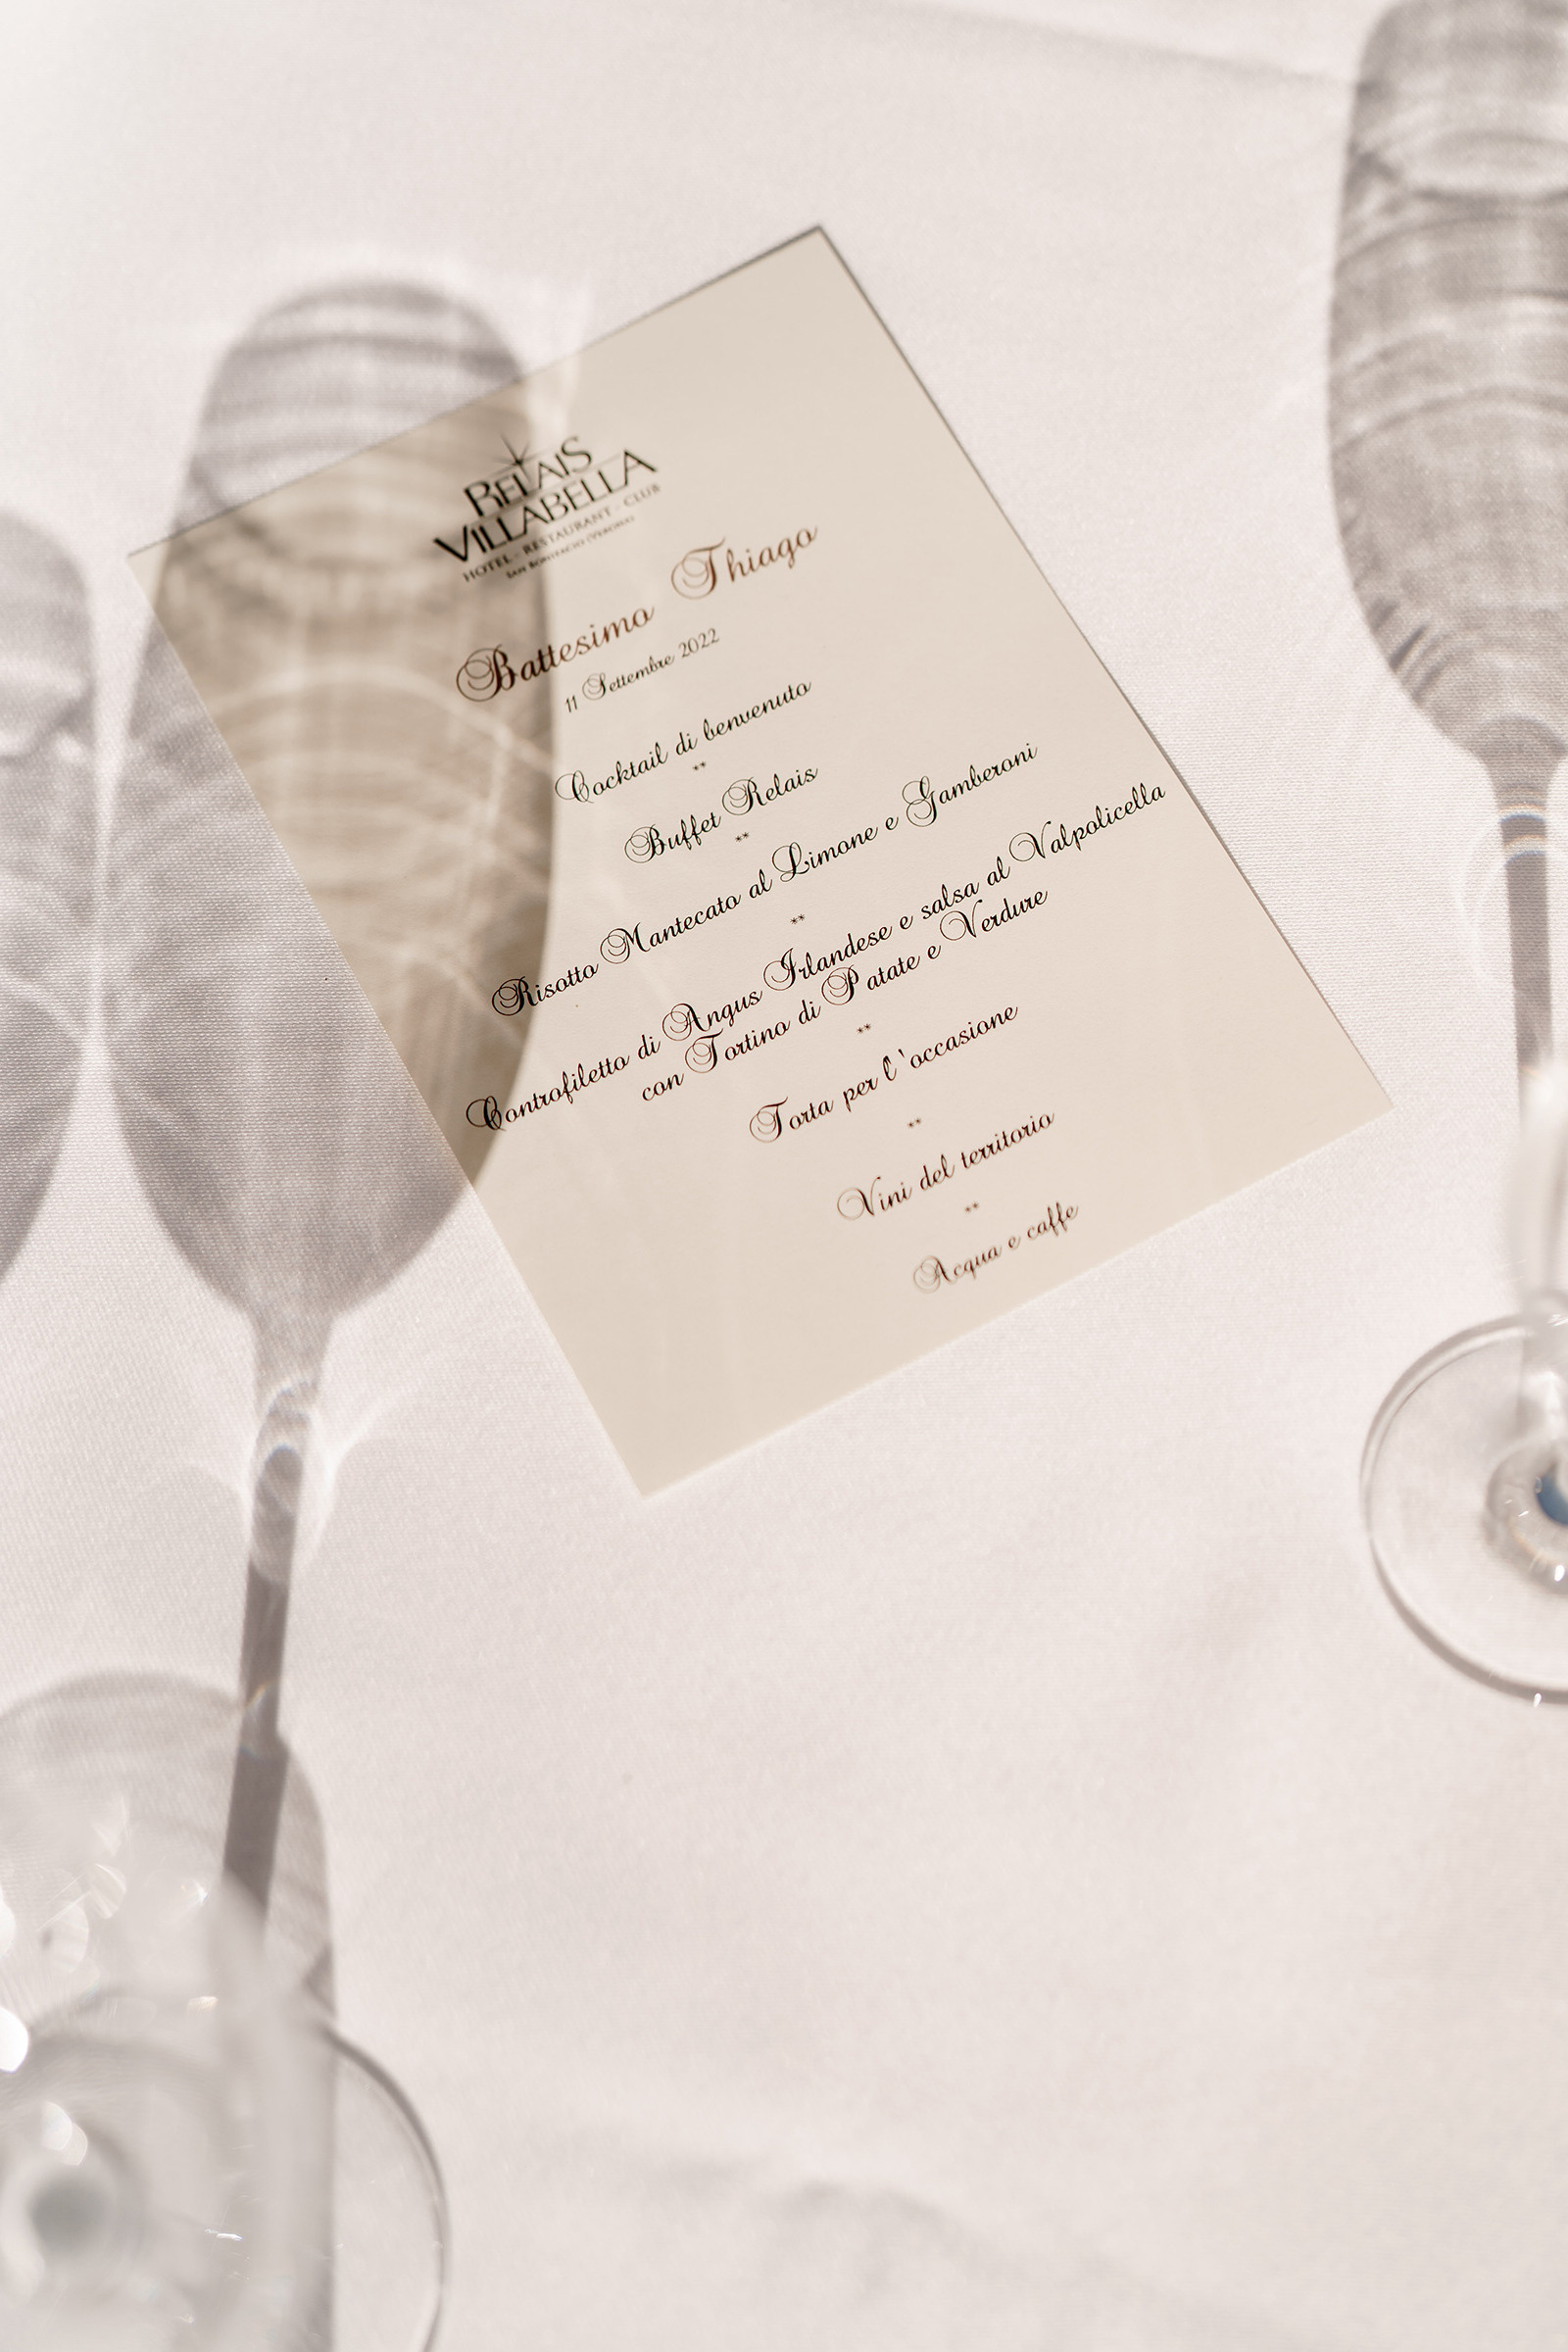 RELAIS
VILLABELLA
HOTEL - RESTAURANT - CLUB
SAN BONIFACIO (VERONA)
Battesimo Thiago
11 Settembre 2022
Cocktail di benvenuto
**
Buffet Relais
**
Risotto Mantecato al Limone e Gamberoni
**
Controfiletto di Angus Irlandese e salsa al Valpolicella
con Tortino di Patate e Verdure
**
Torta per l'occasione
**
Vini del territorio
**
Acqua e caffe